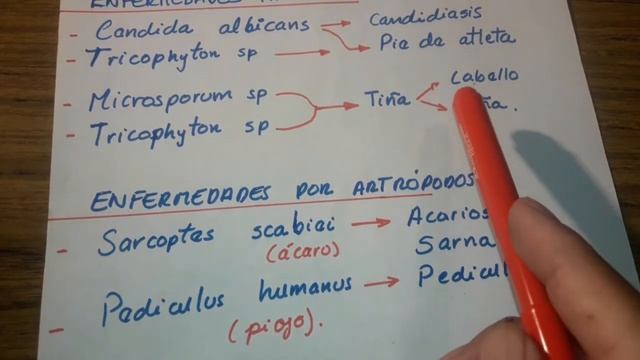 - Candida albicans → Candidiasis
- Tricophyton sp → Pie de atleta
- Microsporum sp
Tiña Caballo
- Tricophyton sp
ENFERMEDADES POR ARTRÓPODOS
- Sarcoptes scabiei → Acarios
(ácaro) Sarna
- Pediculus humanus → Pedicul
(piojo).